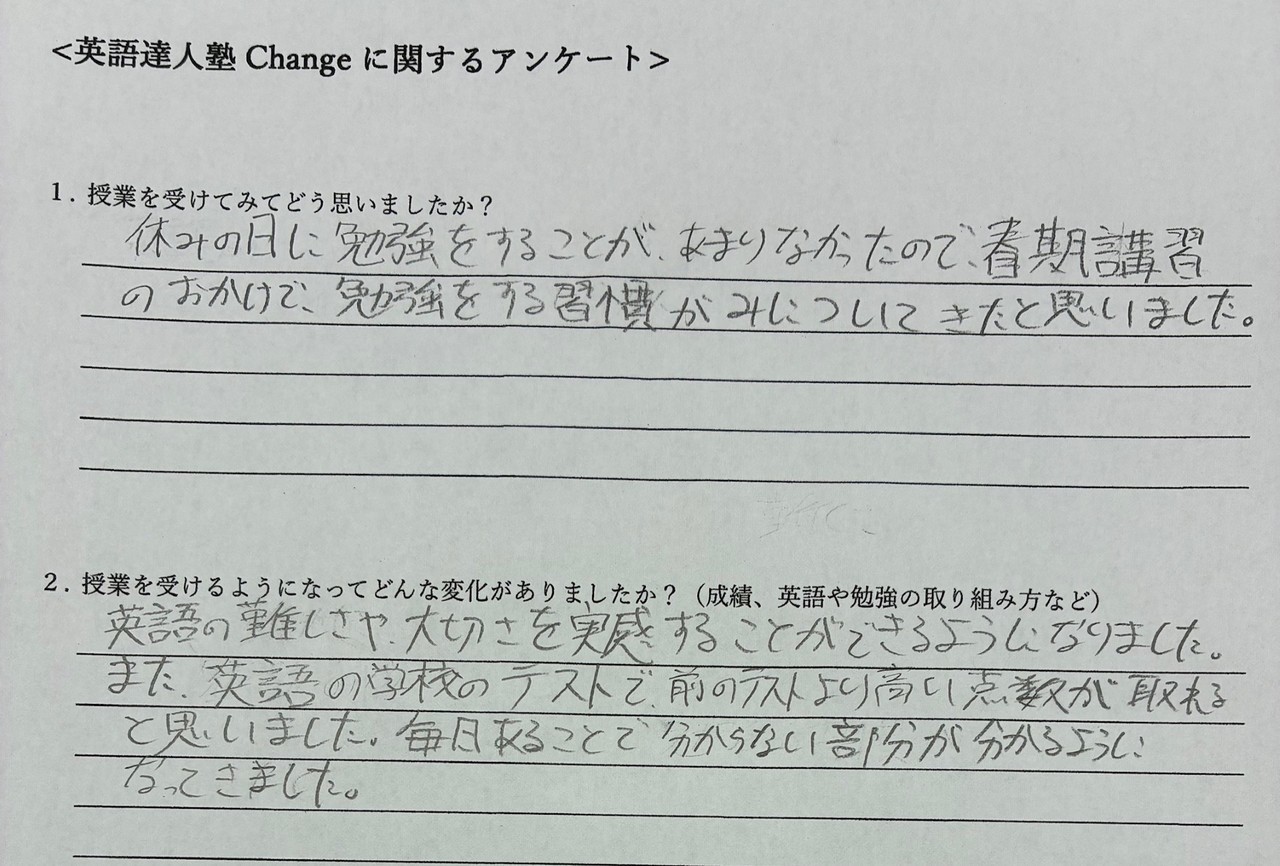 <英語達人塾 Change に関するアンケート>
1. 授業を受けてみてどう思いましたか?
休みの日に勉強をすることが、あまりなかったので、春期講習
のおかげで、勉強をする習慣がみについてきたと思いました。
2. 授業を受けるようになってどんな変化がありましたか?(成績、英語や勉強の取り組み方など)
英語の難しさや、大切さを実感することができるようになりました。
また、英語の学校のテストで、前のテストより高い点数が取れる
と思いました。毎日あることで分からない部分が分かるように
なってきました。